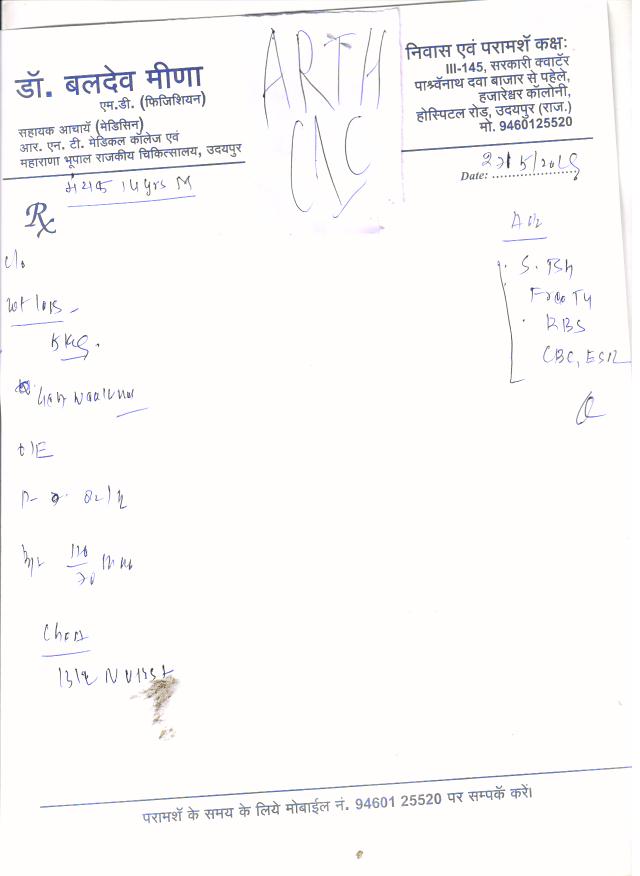 डॉ. बलदेव मीणा
एम.डी. (फिजिशियन)
सहायक आचार्य (मेडिसिन)
आर. एन. टी. मेडिकल कॉलेज एवं
महाराणा भूपाल राजकीय चिकित्सालय, उदयपुर
ARTH
CNC
निवास एवं परामर्श कक्षः
III-145, सरकारी क्वार्टर
पार्श्वनाथ दवा बाजार से पहेले,
हजारेश्वर कॉलोनी,
होस्पिटल रोड, उदयपुर (राज.)
मो. 9460125520
Date:
14 yrs M
Rx
c/o
wt loss
5 kg.
O/E
P-
110
70
Chest
Adv
S. TSH
Free T4
RBS
CBC, ESR
परामर्श के समय के लिये मोबाईल नं. 94601 25520 पर सम्पर्क करें।